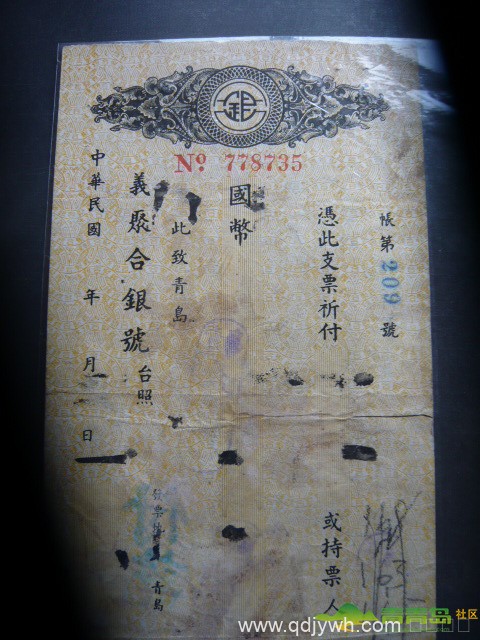 銀
No 778735
帳第209號
憑此支票祈付
或持票人
國幣
此致青島
義聚合銀號台照
中華民國 年 月 日
青島
青青岛社区
www.qdjywh.com